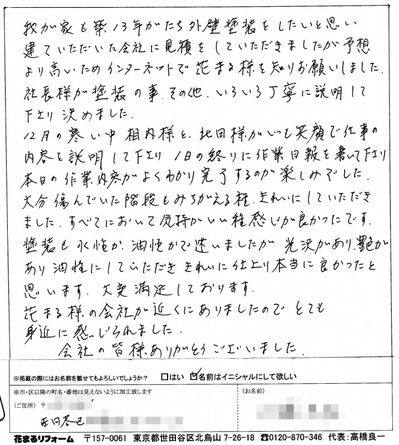 我が家も築13年がたち外壁塗装をしたいと思い
建ていただいた会社に見積をしていただきましたが予想
より高いためインターネットで花まる様を知りお願いしました。
社長様が塗装の事、その他、いろいろ丁寧に説明して
下さり決めました。
12月の寒い中 相内様と、池田様がいつも笑顔で仕事の
内容を説明して下さり 1日の終りに作業日報を書いて下さり
本日の作業内容がよくわかり完了するのが楽しみでした。
大分傷んでいた階段もみちがえる程、きれいにしていただき
ました。すべてにおいて気持がいい程感じが良かったです。
塗装も水性か、油性かで迷いましたが光沢があり、艶が
あり油性にしていただき きれいに仕上り本当に良かったと
思います。大変満足しております。
花まる様の会社が近くにありましたので とても
身近に感じられました。
会社の皆様、ありがとうございました。
※掲載の際にはお名前を載せてもよろしいでしょうか? □はい ☑名前はイニシャルにして欲しい
※市・区以降の町名・番地は見えないように加工致します
(ご住所) 〒
(お名前)
花まるリフォーム 〒157-0061 東京都世田谷区北烏山7-26-18 ☎0120-870-346 代表:高橋良一